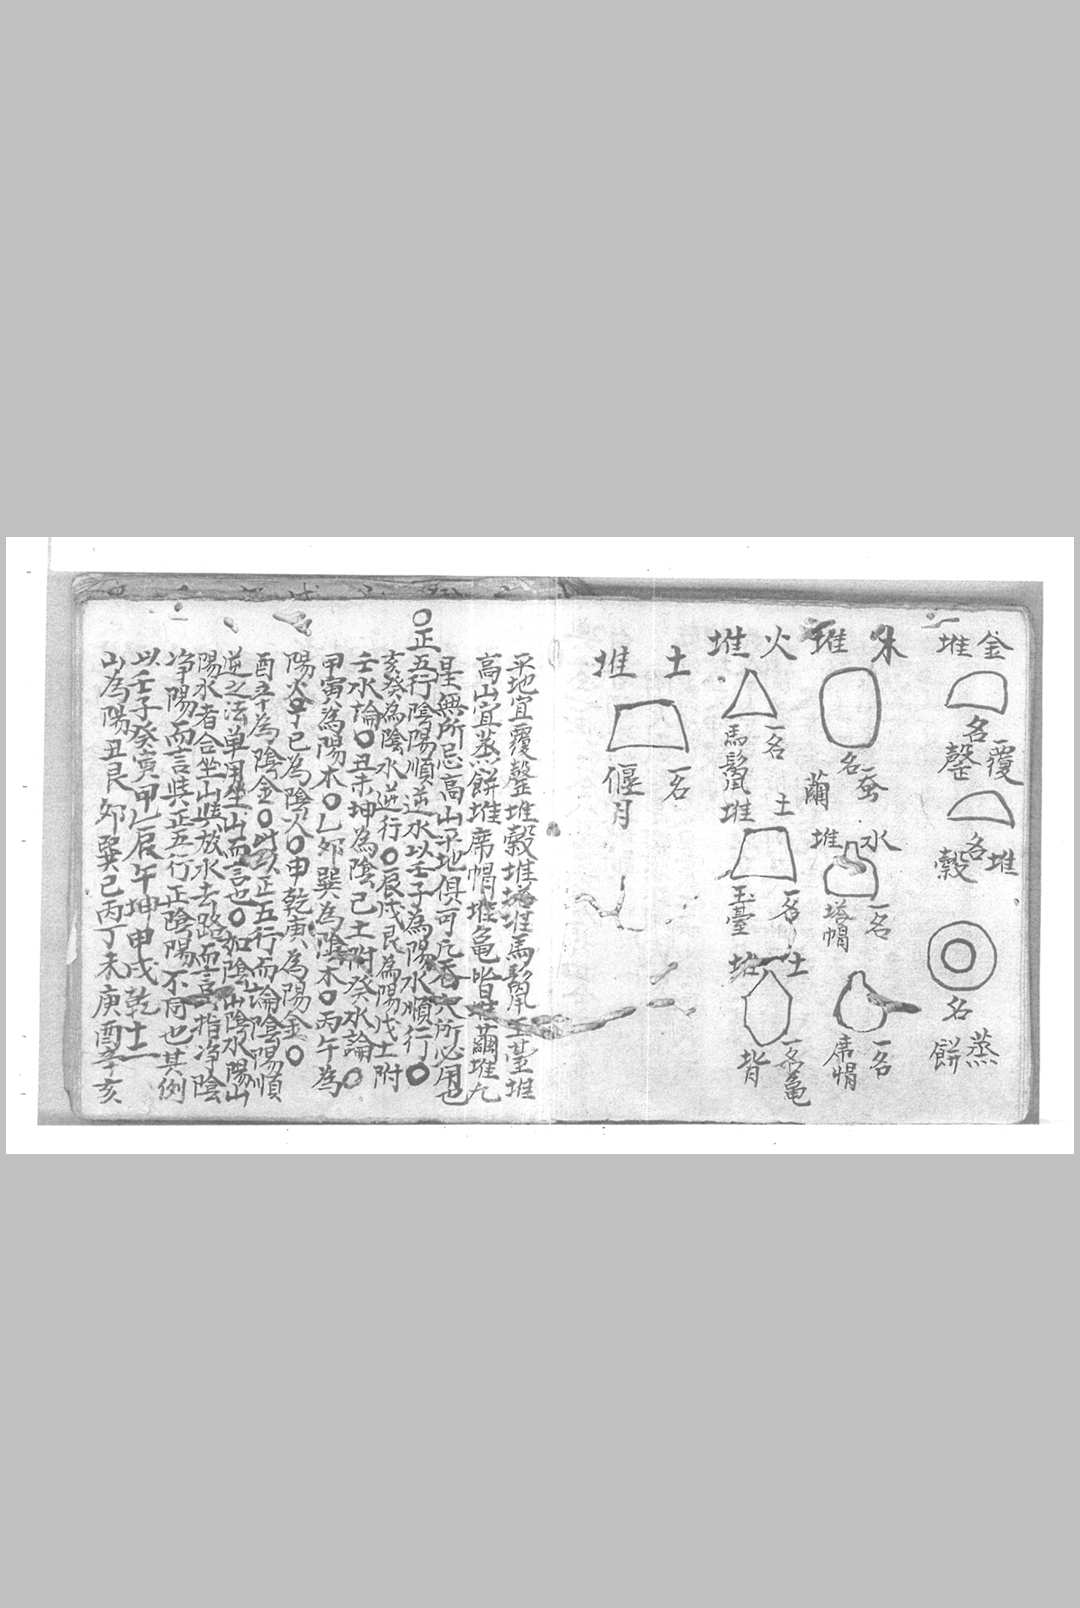 金堆
一名覆罄
一名穀堆
一名蒸餅
木堆
一名蚕繭
水堆
一名塔帽
一名席帽
火堆
一名馬鬛堆
土
一名玉臺
土堆
一名亀背
土堆
一名偃月
平地宜覆罄堆穀堆塔堆馬鬛堆玉臺堆
高山宜蒸餅堆席帽堆亀背堆繭堆九
星無所忌高山平地俱可凡吞穴所必用也
〇正五行陰陽順逆水以壬子為陽水順行〇
亥癸為陰水逆行〇辰戌艮為陽戊土附
壬水論〇丑未坤為陰己土附癸水論〇
甲寅為陽木〇乙夘巽為陰木〇丙午為
陽火丁巳為陰火〇申乾庚為陽金〇
酉辛為陰金〇此以正五行而論陰陽順
逆之法单用坐山而言也〇如陰山陰水陽山
陽水者合坐山與放水去路而言指净陰
净陽而言與正五行正陰陽不同也其例
以壬子癸寅甲乙辰午坤申戌乾十二
山為陽丑艮夘巽巳丙丁未庚酉辛亥